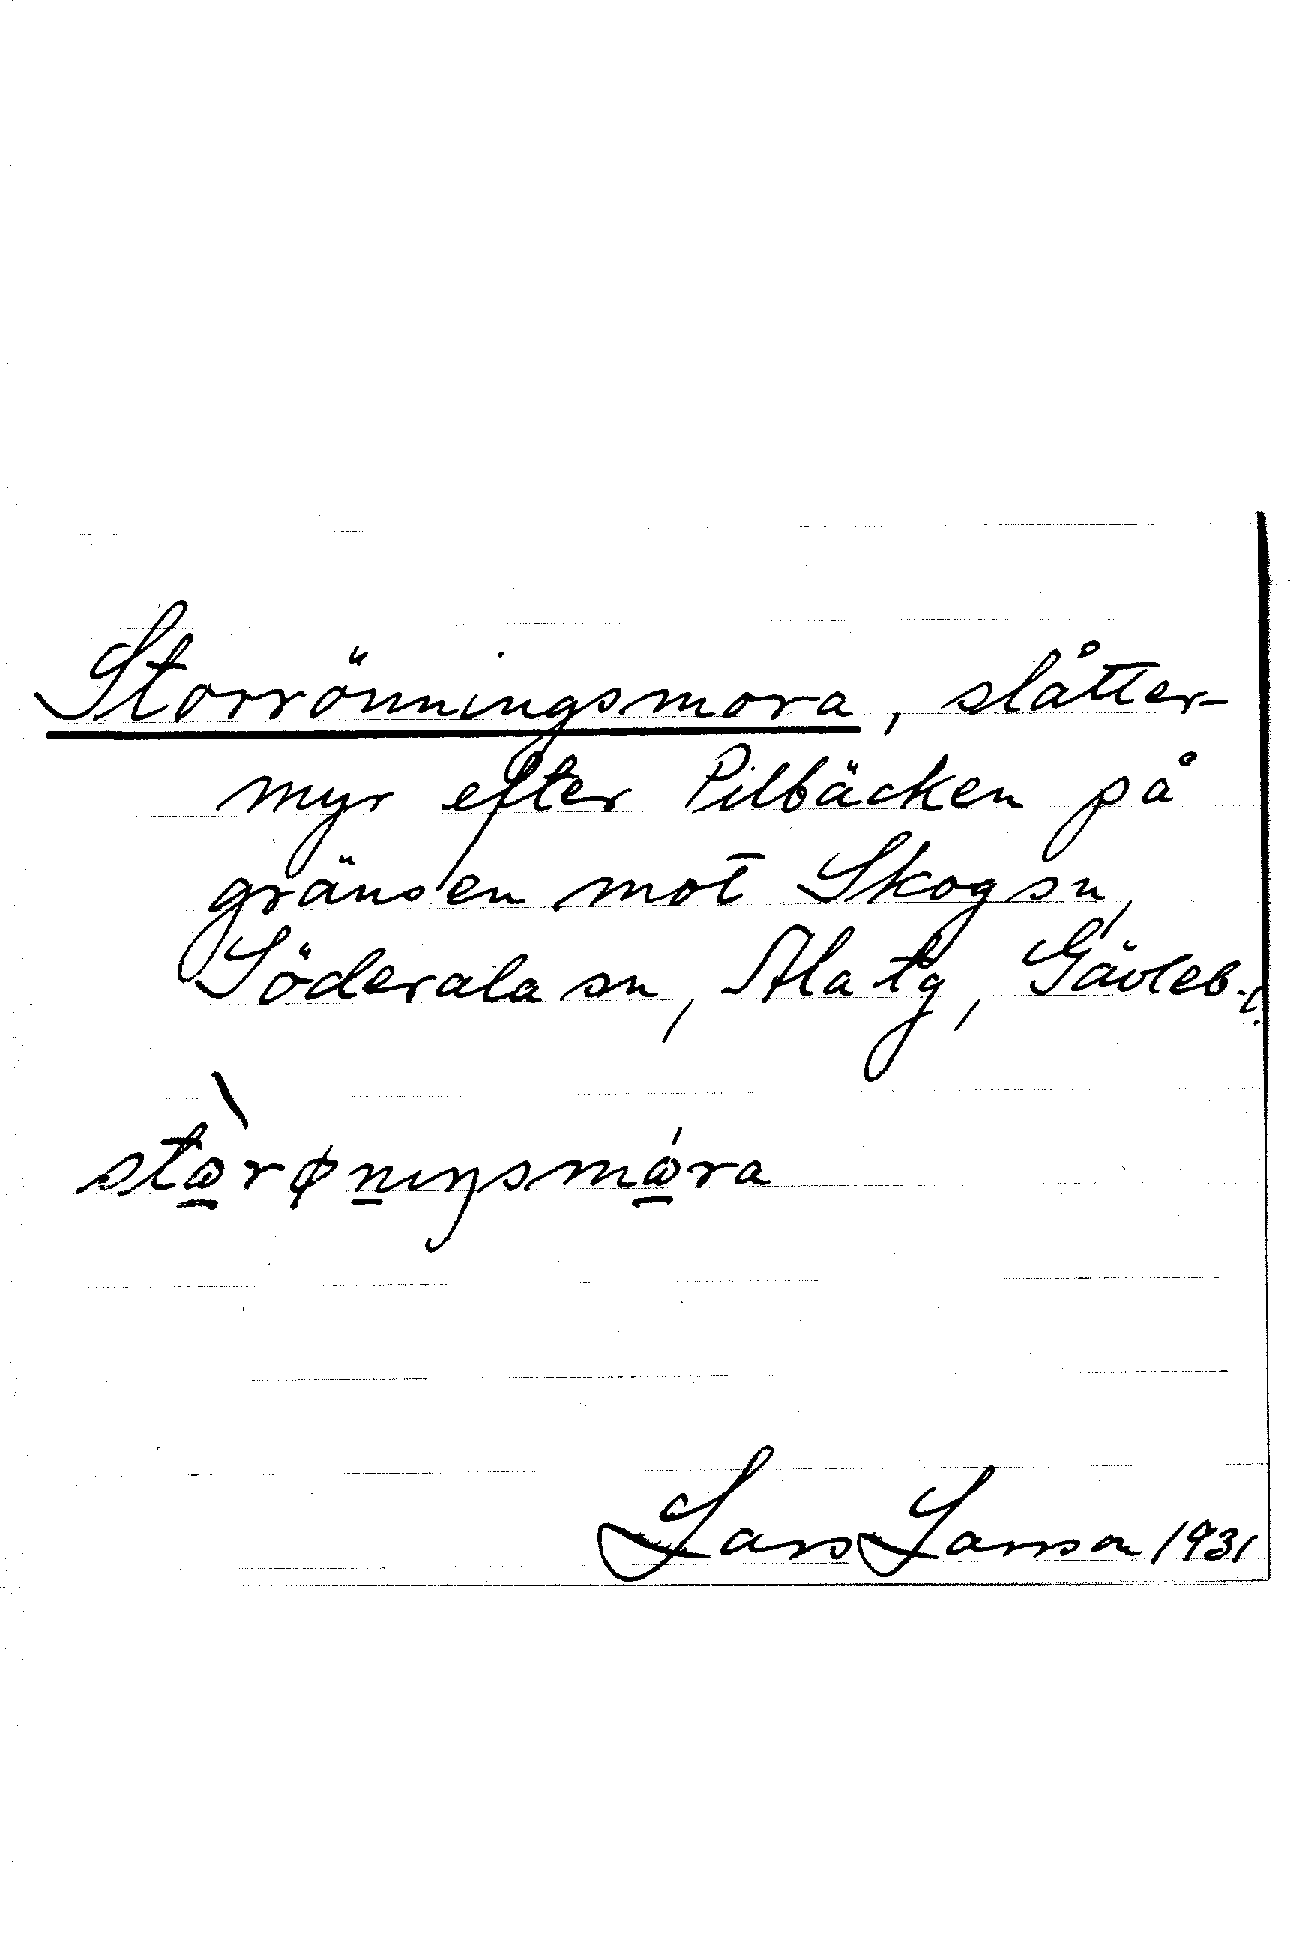 Storrönningsmora, slåtter-
myr efter Pilbäcken på
gränsen mot Skog sn,
Söderala sn, Ala tg, Gävleb. l.
stὼ̲rφn̲ıŋsmώ̲ra
Lars Larsson 1931